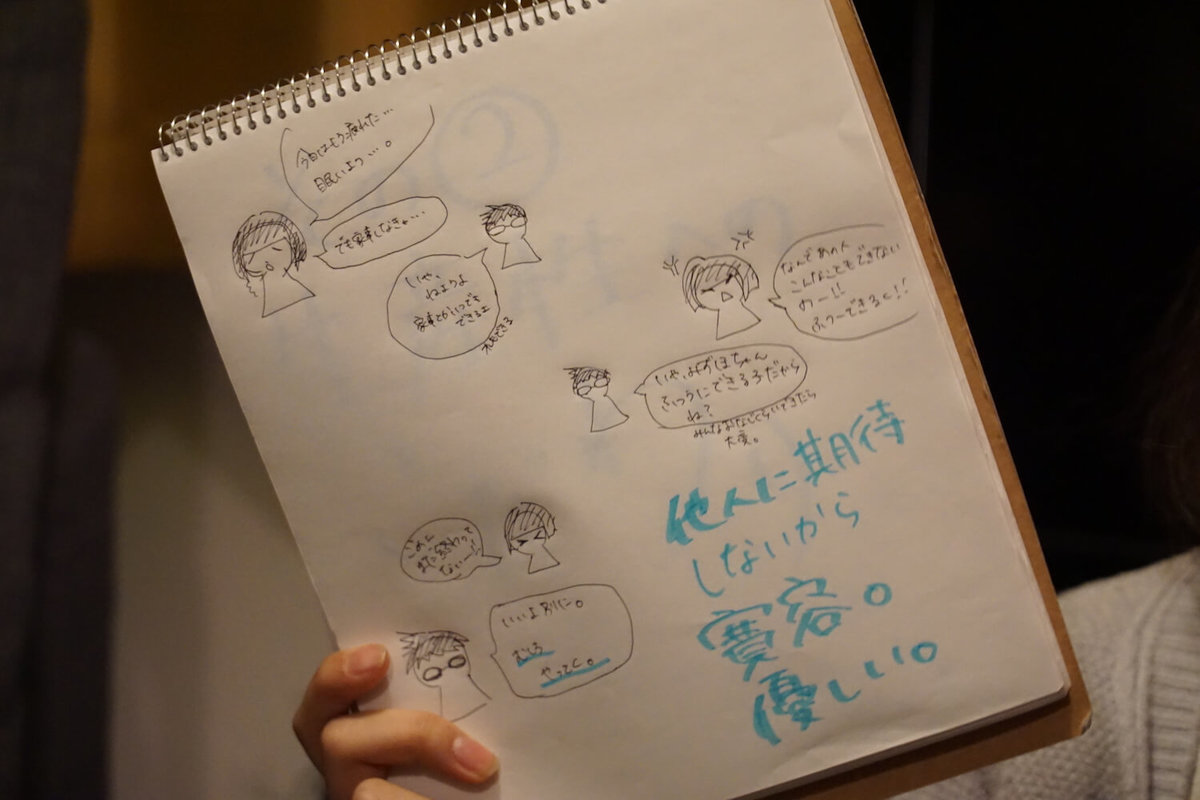 今日はもう疲れた…
眠いよう…。
でも家事しなきゃ…
いや、
ねようよ
家事とかいつでも
できるよ
オレもできる
なんであの人
こんなこともできない
のー!!
ふつーできるく!!
いや、みずほちゃん
ふつうにできるろだから
ね?
みんなおなじくらいできたら
大変。
他人に期待
しないから
寛容。
優しい。
ごめん
まだ終わって
ないー!!
いいよ別に。
むしろ
やってく。